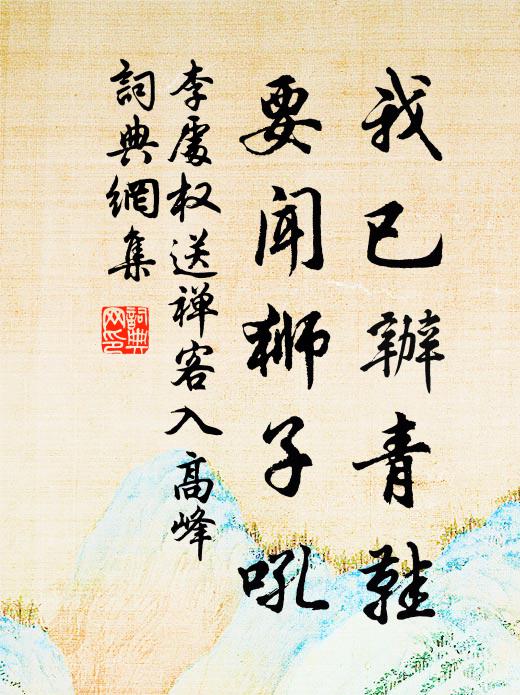 我已辦青鞋
要闻狮子吼
李處权送禅客入高峰
詞典網集
詞典网印